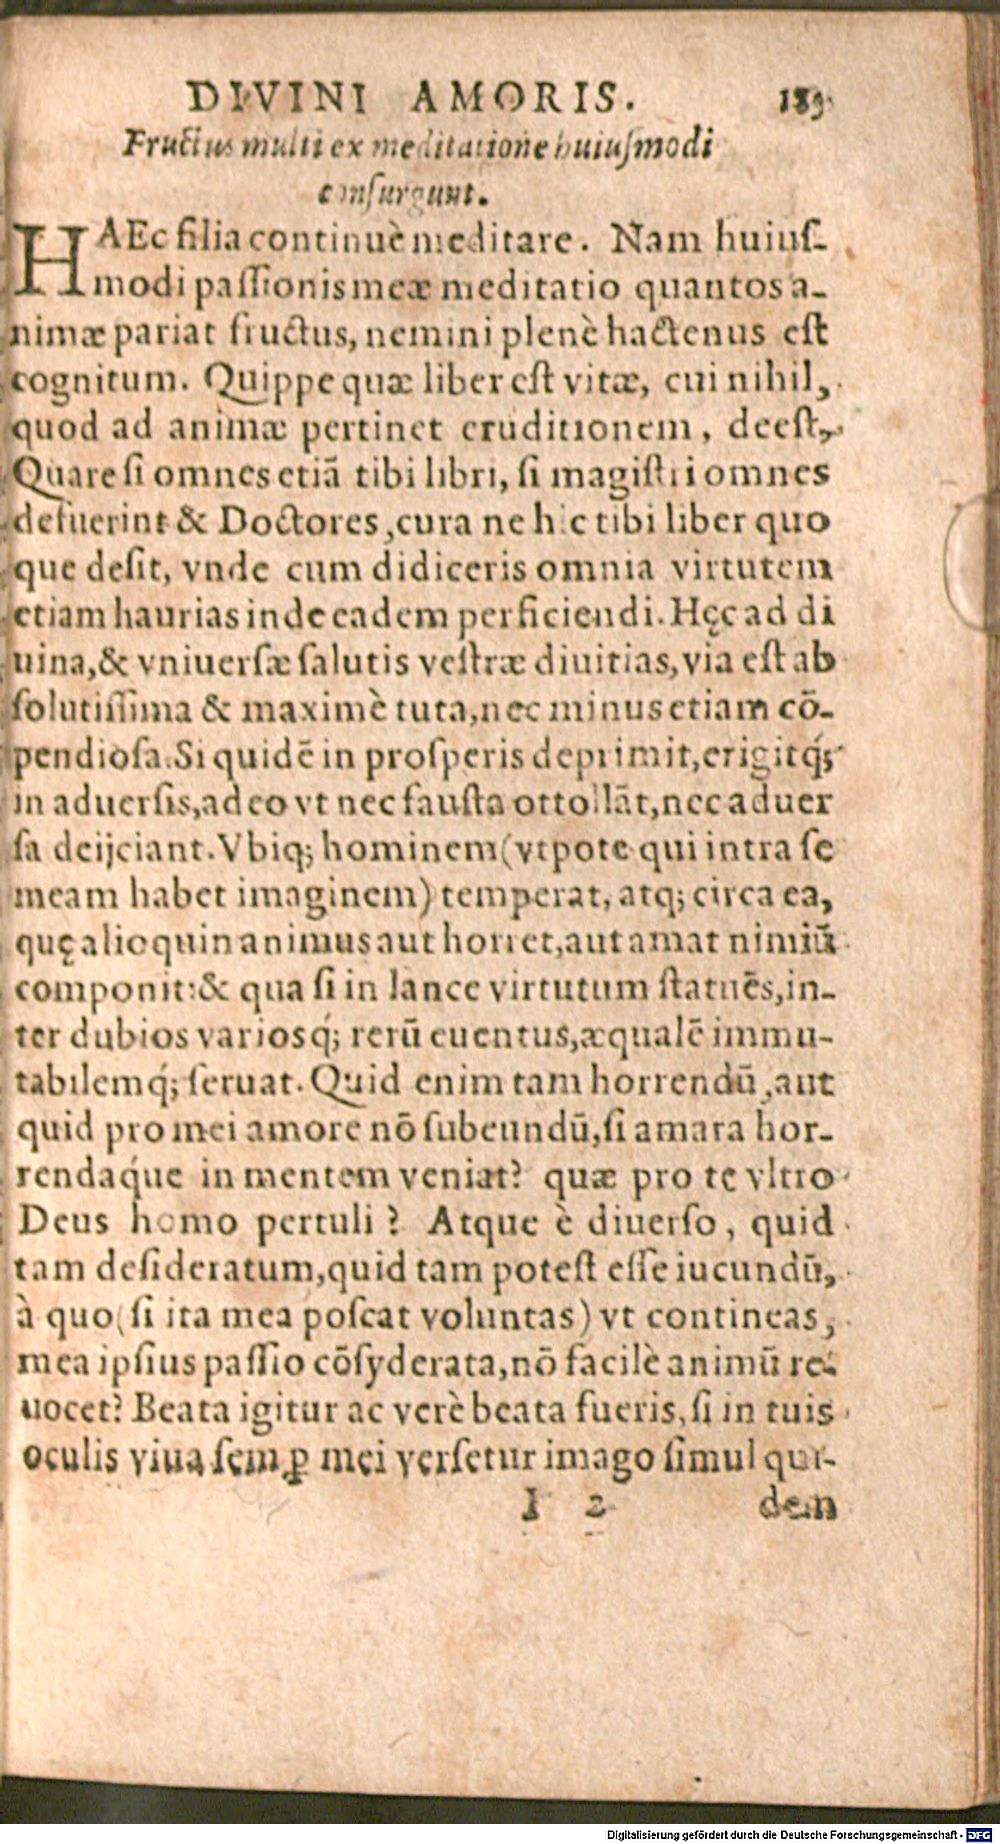 DIVINI AMORIS. 189.
Fructus multi ex meditatione huiusmodi
consurgunt.
HAEc filia continuè meditare. Nam huiuſ-
modi paſſionis meæ meditatio quantos a-
nimæ pariat fructus, nemini plenè hactenus eſt
cognitum. Quippe quæ liber eſt vitæ, cui nihil,
quod ad animæ pertinet eruditionem, deeſt,
Quare ſi omnes etiã tibi libri, ſi magiſtri omnes
defuerint & Doctores, cura ne hic tibi liber quo
que deſit, vnde cum didiceris omnia virtutem
etiam haurias inde eadem perficiendi. Hęc ad di
uina, & vniuerſæ ſalutis veſtræ diuitias, via eſt ab
ſolutiſſima & maximè tuta, nec minus etiam cõ-
pendioſa. Si quidẽ in proſperis deprimit, erigitq́;
in aduerſis, adeo vt nec fauſta ottollãt, nec aduer
ſa deijciant. Vbiq; hominem (vtpote qui intra ſe
meam habet imaginem) temperat, atq; circa ea,
quę alioquin animus aut horret, aut amat nimiũ
componit: & qua ſi in lance virtutum ſtatuẽs, in-
ter dubios variosq́; rerũ euentus, æqualẽ immu-
tabilemq́; ſeruat. Quid enim tam horrendũ, aut
quid pro mei amore nõ ſubeundũ, ſi amara hor-
rendaq́ue in mentem veniat? quæ pro te vltro
Deus homo pertuli? Atque è diuerſo, quid
tam deſideratum, quid tam poteſt eſſe iucundũ,
à quo (ſi ita mea poſcat voluntas) vt contineas,
mea ipſius paſſio cõſyderata, nõ facilè animũ re-
uocet? Beata igitur ac verè beata fueris, ſi in tuis
oculis viua ſemꝑ mei verſetur imago ſimul qui-
I 2 dem
Digitalisierung gefördert durch die Deutsche Forschungsgemeinschaft - DFG